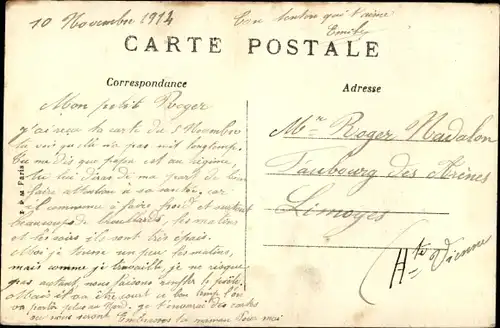 10 Novembre 1914
Ton tonton qui t'aime
Emile
CARTE POSTALE
Correspondance
Adresse
Mon petit Roger
j'ai reçu ta carte du 5 Novembre
tu vois qu'elle n'a pas mit longtemp.
Tu me dis que papa est au régime,
tu lui diras de ma part de bien
faire attention à sa santé, car
il commence à faire froid et surtout
beaucoup de brouillards, les matins
et les soirs ils sont très épais.
Moi je tousse un peu les matins,
mais comme je travaille, je ne risque
pas autant, nous faisons
Mais est au bon temp l'on
va partir plus au des cartes
ou nous seront Embrasses ta maman pour moi
Mr Roger Nadalon
Faubourg des Arènes
Limoges
Hte Vienne
M Paris